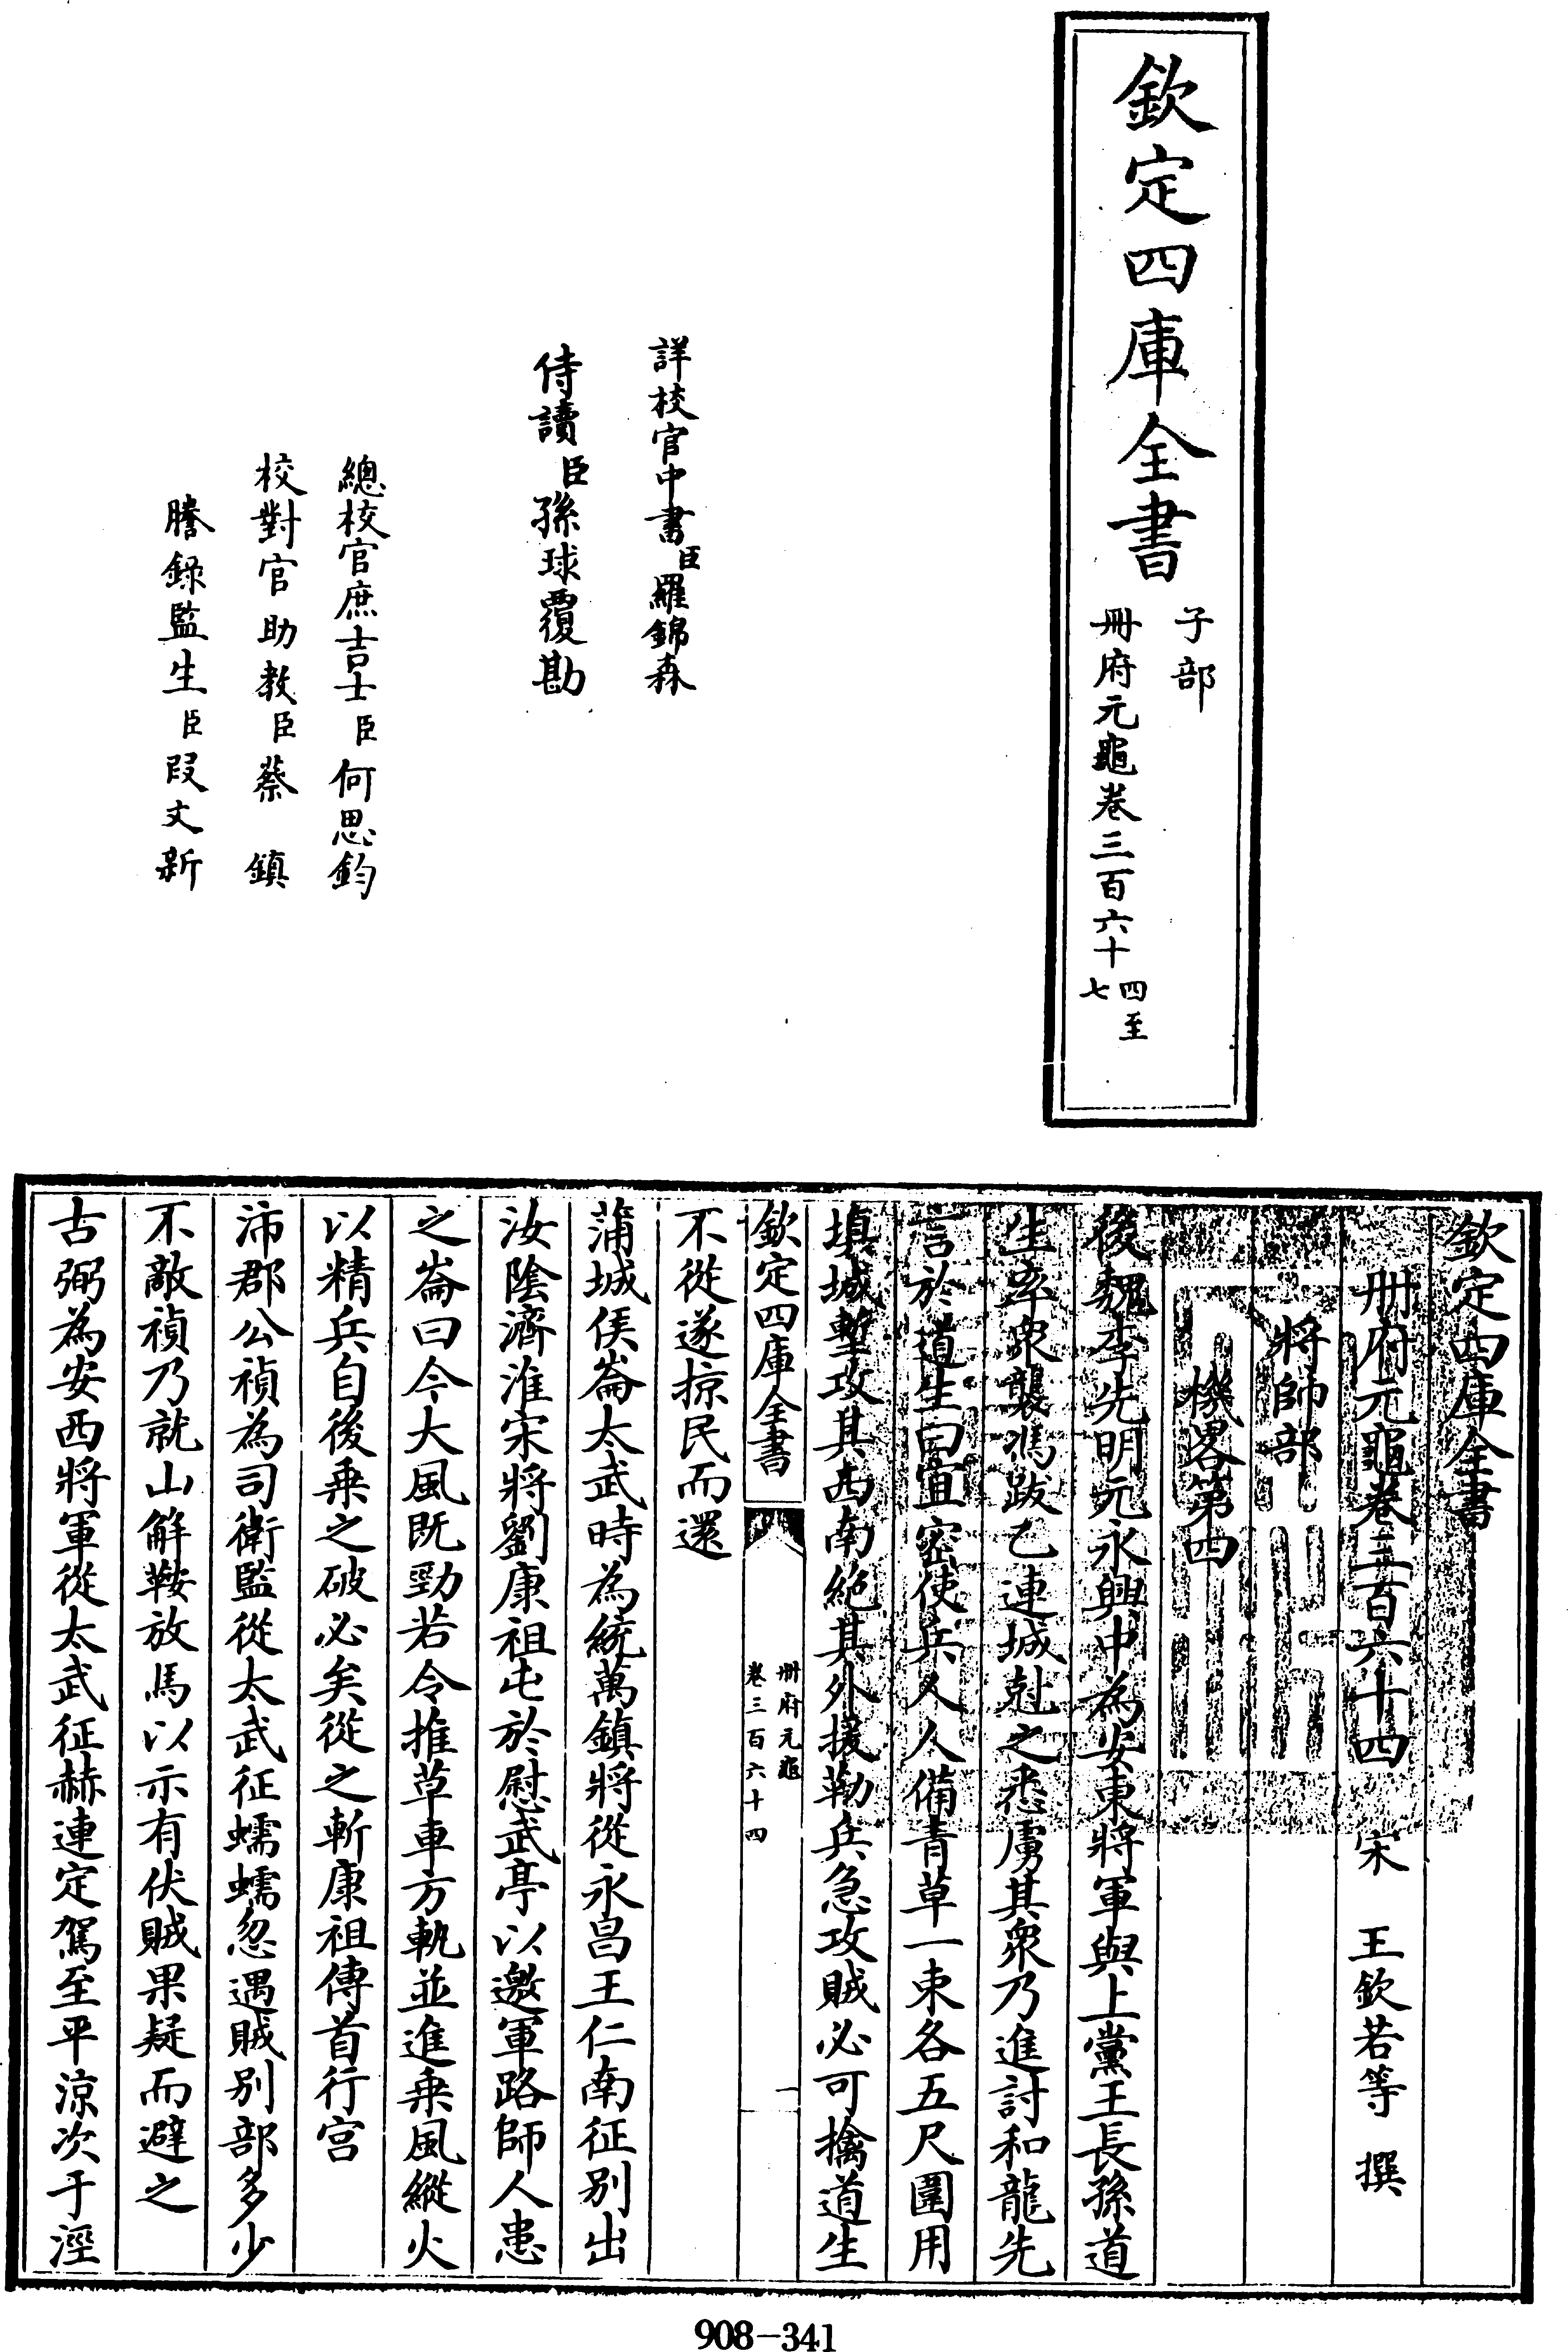 欽定四庫全書
子部
冊府元龜卷三百六十四至七
詳校官中書臣羅錦森
侍讀臣孫球覆勘
總校官庶吉士臣何思鈞
校對官助教臣蔡鎮
謄錄監生臣段文新
欽定四庫全書
冊府元龜卷三百六十四 宋 王欽若等 撰
將帥部
機畧第四
後魏李先明元永興中為安東將軍與上黨王長孫道
生率衆襲馮跋乙連城尅之悉虜其衆乃進討和龍先
言於道生曰宜密使兵人人備青草一束各五尺圍用
填城塹攻其西南絶其外援勒兵急攻賊必可擒道生
不從遂掠民而還
欽定四庫全書
冊府元龜
卷三百六十四
一
蒲城侯崙太武時為統萬鎮將從永昌王仁南征别出
汝隂濟淮宋將劉康祖屯於慰武亭以邀軍路師人患
之崙曰今大風既勁若令推草車方軌並進乗風縱火
以精兵自後乗之破必矣從之斬康祖傳首行宫
沛郡公禎為司衛監從太武征蠕蠕忽遇賊别部多少
不敵禎乃就山解鞍放馬以示有伏賊果疑而避之
古弼為安西將軍從太武征赫連定駕至平涼次于涇
908-341